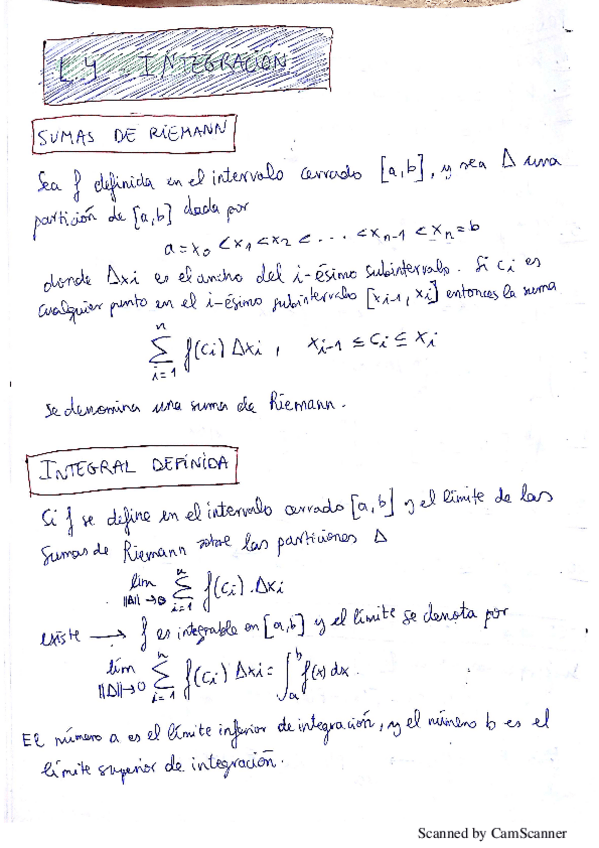 L.4. INTEGRACIÓN
SUMAS DE RIEMANN
Sea f definida en el intervalo cerrado [a,b], y sea Δ una
partición de [a,b] dada por
a = x₀ < x₁ < x₂ < ... < xₙ₋₁ < xₙ = b
donde Δxi es el ancho del i-ésimo subintervalo. Si ci es
cualquier punto en el i-ésimo subintervalo [xᵢ₋₁, xᵢ] entonces la suma
∑ᵢ₌₁ⁿ f(ci) Δxi , xᵢ₋₁ ≤ cᵢ ≤ xᵢ
se denomina una suma de Riemann.
INTEGRAL DEFINIDA
Si f se define en el intervalo cerrado [a,b] y el límite de las
Sumas de Riemann sobre las particiones Δ
lím ||Δ||→0 ∑ᵢ₌₁ⁿ f(ci).Δxi
existe → f es integrable en [a,b] y el límite se denota por
lím ||Δ||→0 ∑ᵢ₌₁ⁿ f(ci) Δxi = ∫ₐᵇ f(x) dx.
El número a es el límite inferior de integración, y el número b es el
límite superior de integración.
Scanned by CamScanner